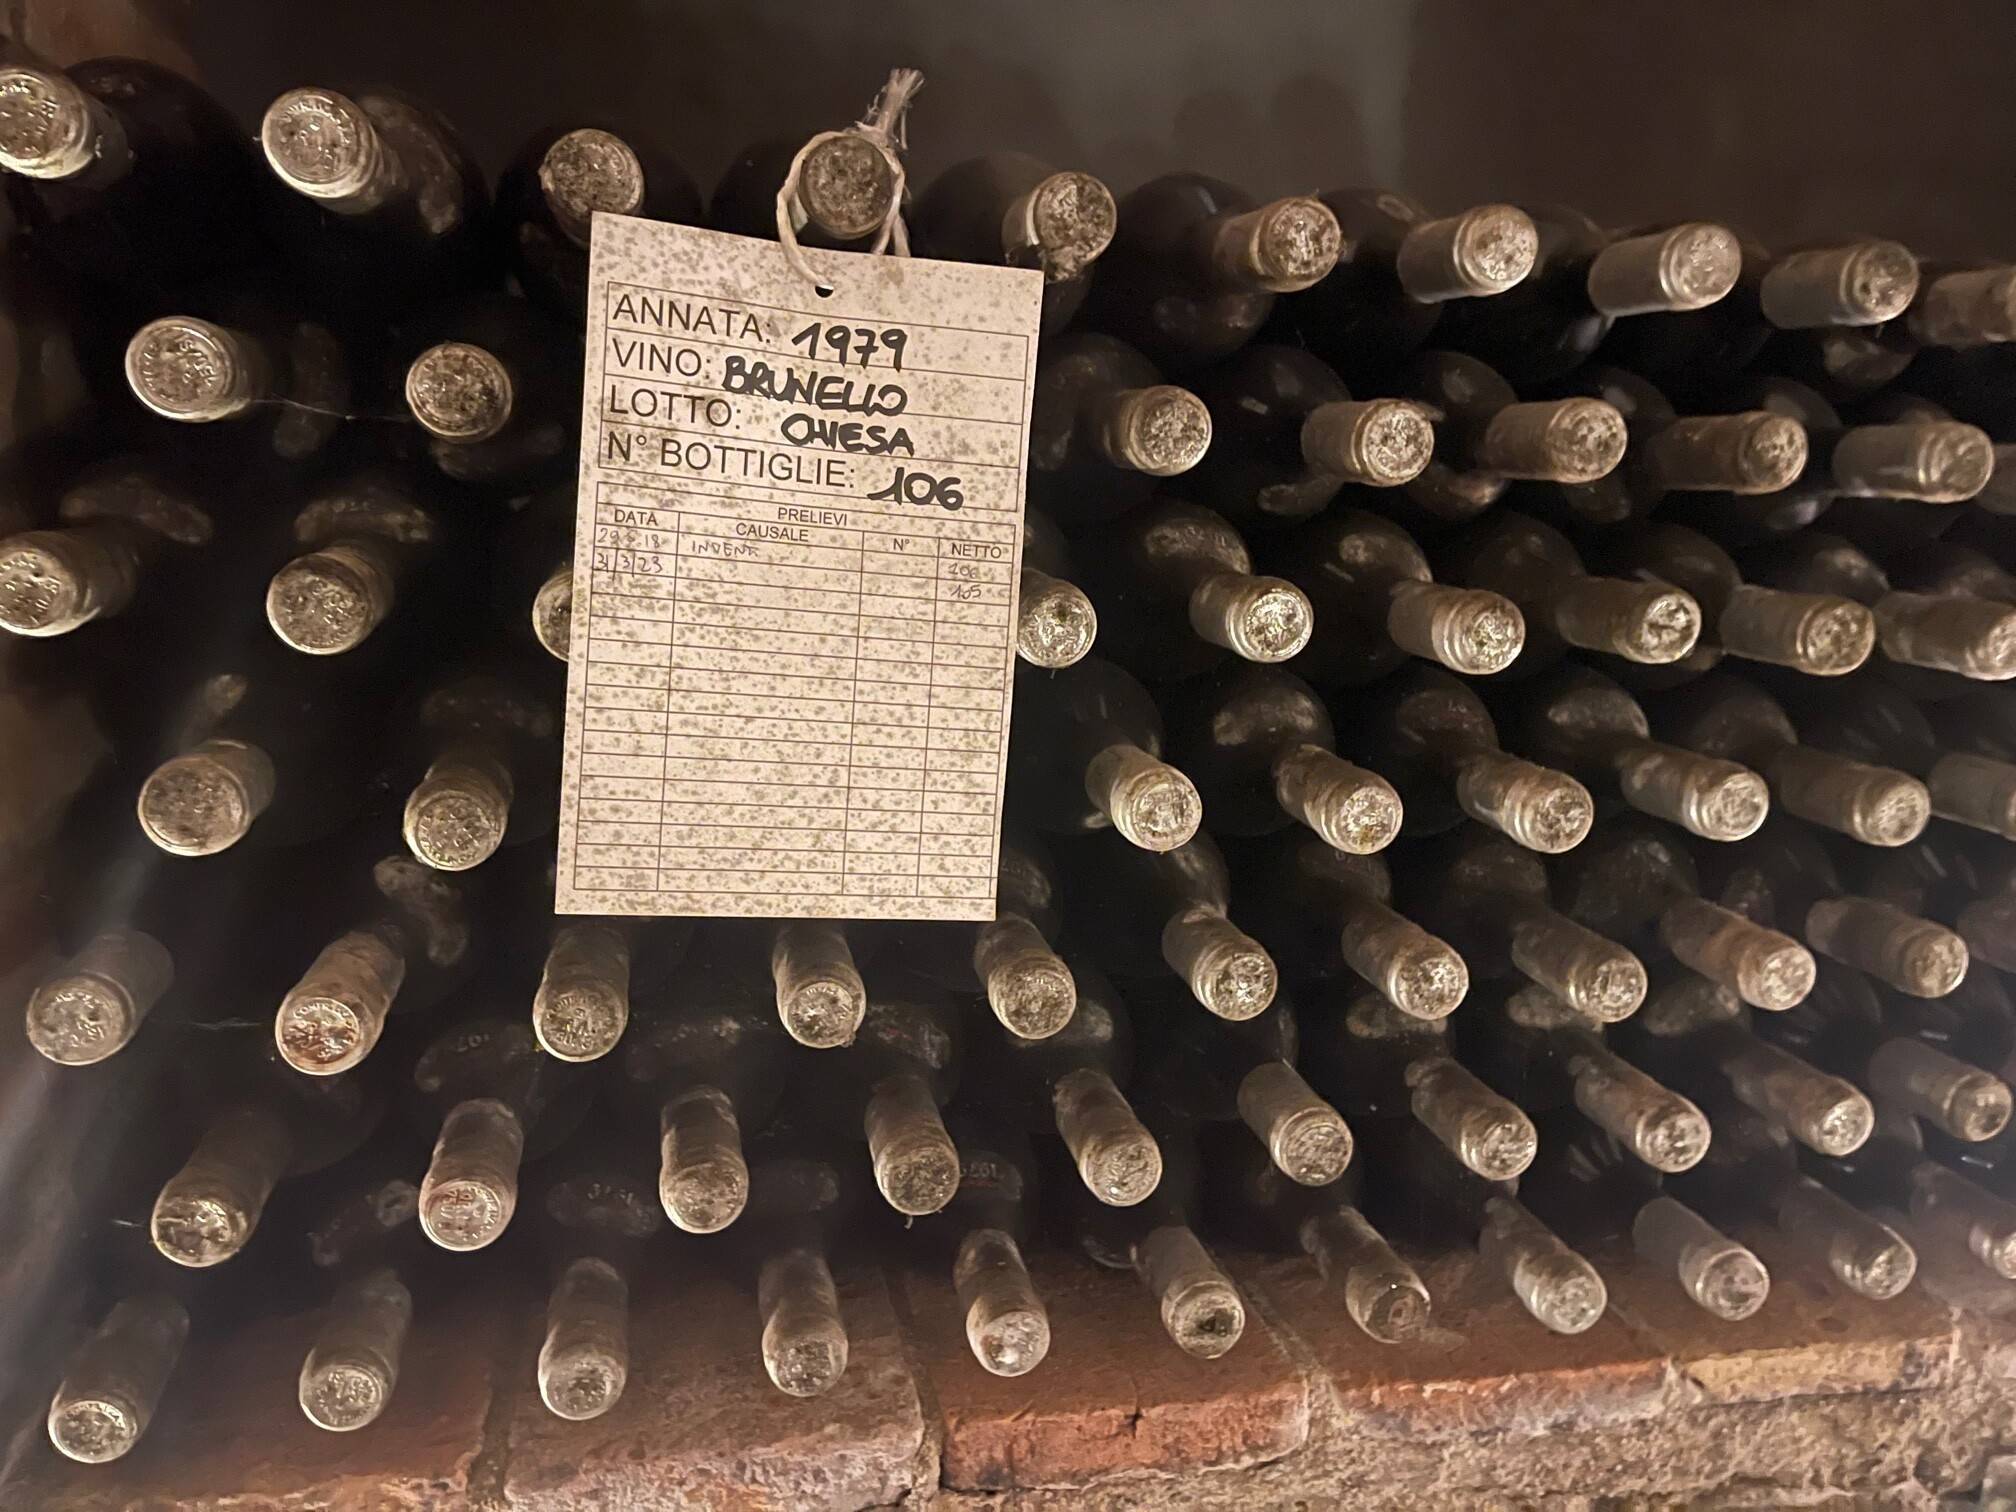 ANNATA: 1979
VINO: BRUNELLO
LOTTO: CHIESA
N° BOTTIGLIE: 106
PRELIEVI
DATA CAUSALE N° NETTO
INVENT 106
31/3/23 105